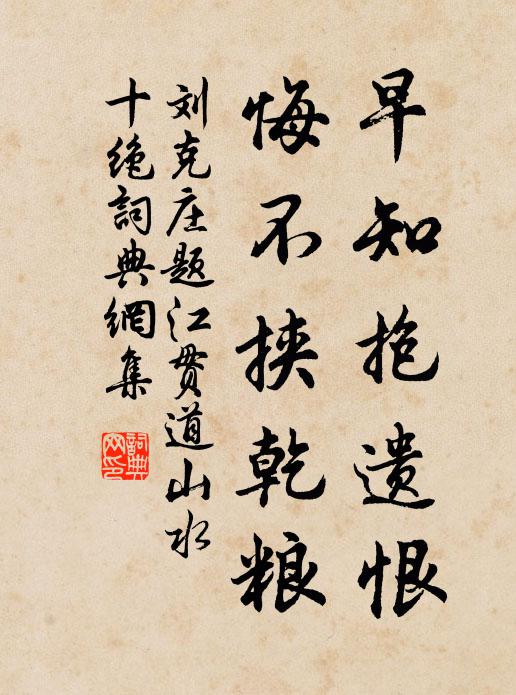 早知抱遗恨
悔不挟乾粮
刘克庄题江贯道山水
十绝詞典網集
詞典网印